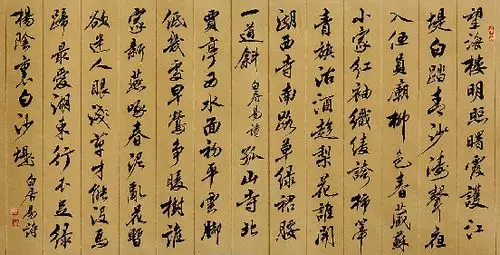 望海樓明照曙霞護江
堤白踏青沙濤聲夜
入伍員廟柳色春藏蘇
小家紅袖織綾誇柿蒂
青旗沽酒趁梨花誰開
湖西寺南路草綠裙腰
一道斜 白居易詩 孤山寺北
賈亭西水面初平雲腳
低幾處早鶯爭暖樹誰
家新燕啄春泥亂花暫
欲迷人眼淺草才能沒馬
蹄最愛湖東行不足綠
楊陰裏白沙堤 白居易詩